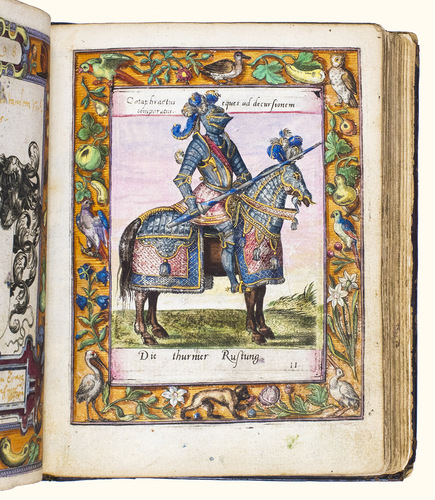 Cataphractus eques ad decursionem
temporatus.
Die thurnier Rustung
11